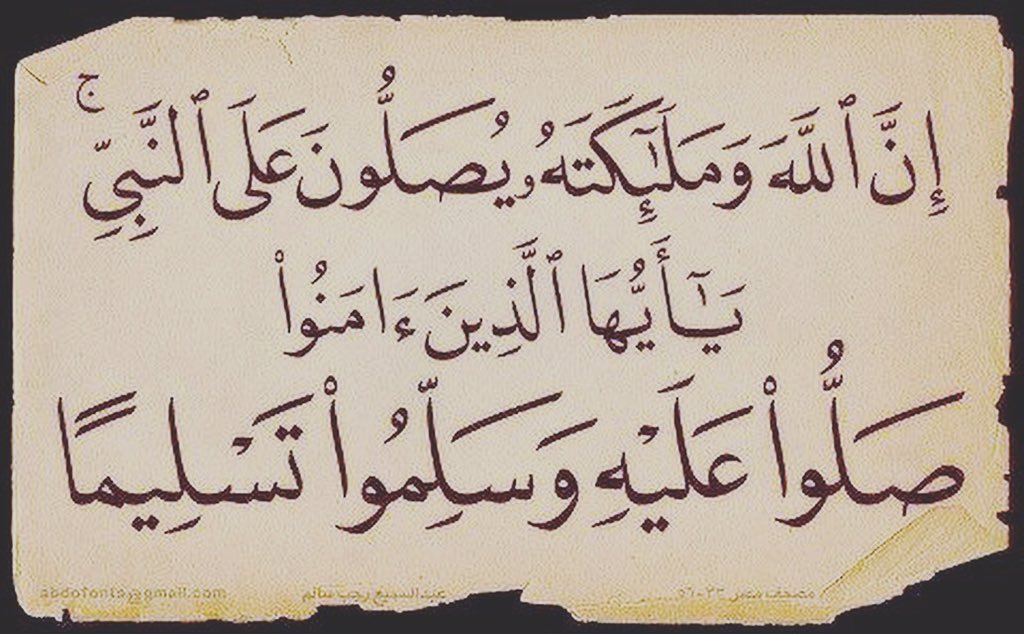 إِنَّ ٱللَّهَ وَمَلَٰٓئِكَتَهُۥ يُصَلُّونَ عَلَى ٱلنَّبِىِّ ۚ
يَٰٓأَيُّهَا ٱلَّذِينَ ءَامَنُوا۟
صَلُّوا۟ عَلَيْهِ وَسَلِّمُوا۟ تَسْلِيمًا
مصحف مصر ٣٣-٥٦ عبدالسميع رجب سالم abdofonts@gmail.com